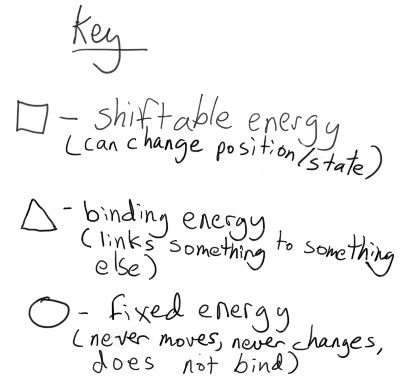 Key
- shiftable energy
(can change position/state)
- binding energy
(links something to something
else)
- fixed energy
(never moves, never changes,
does not bind)